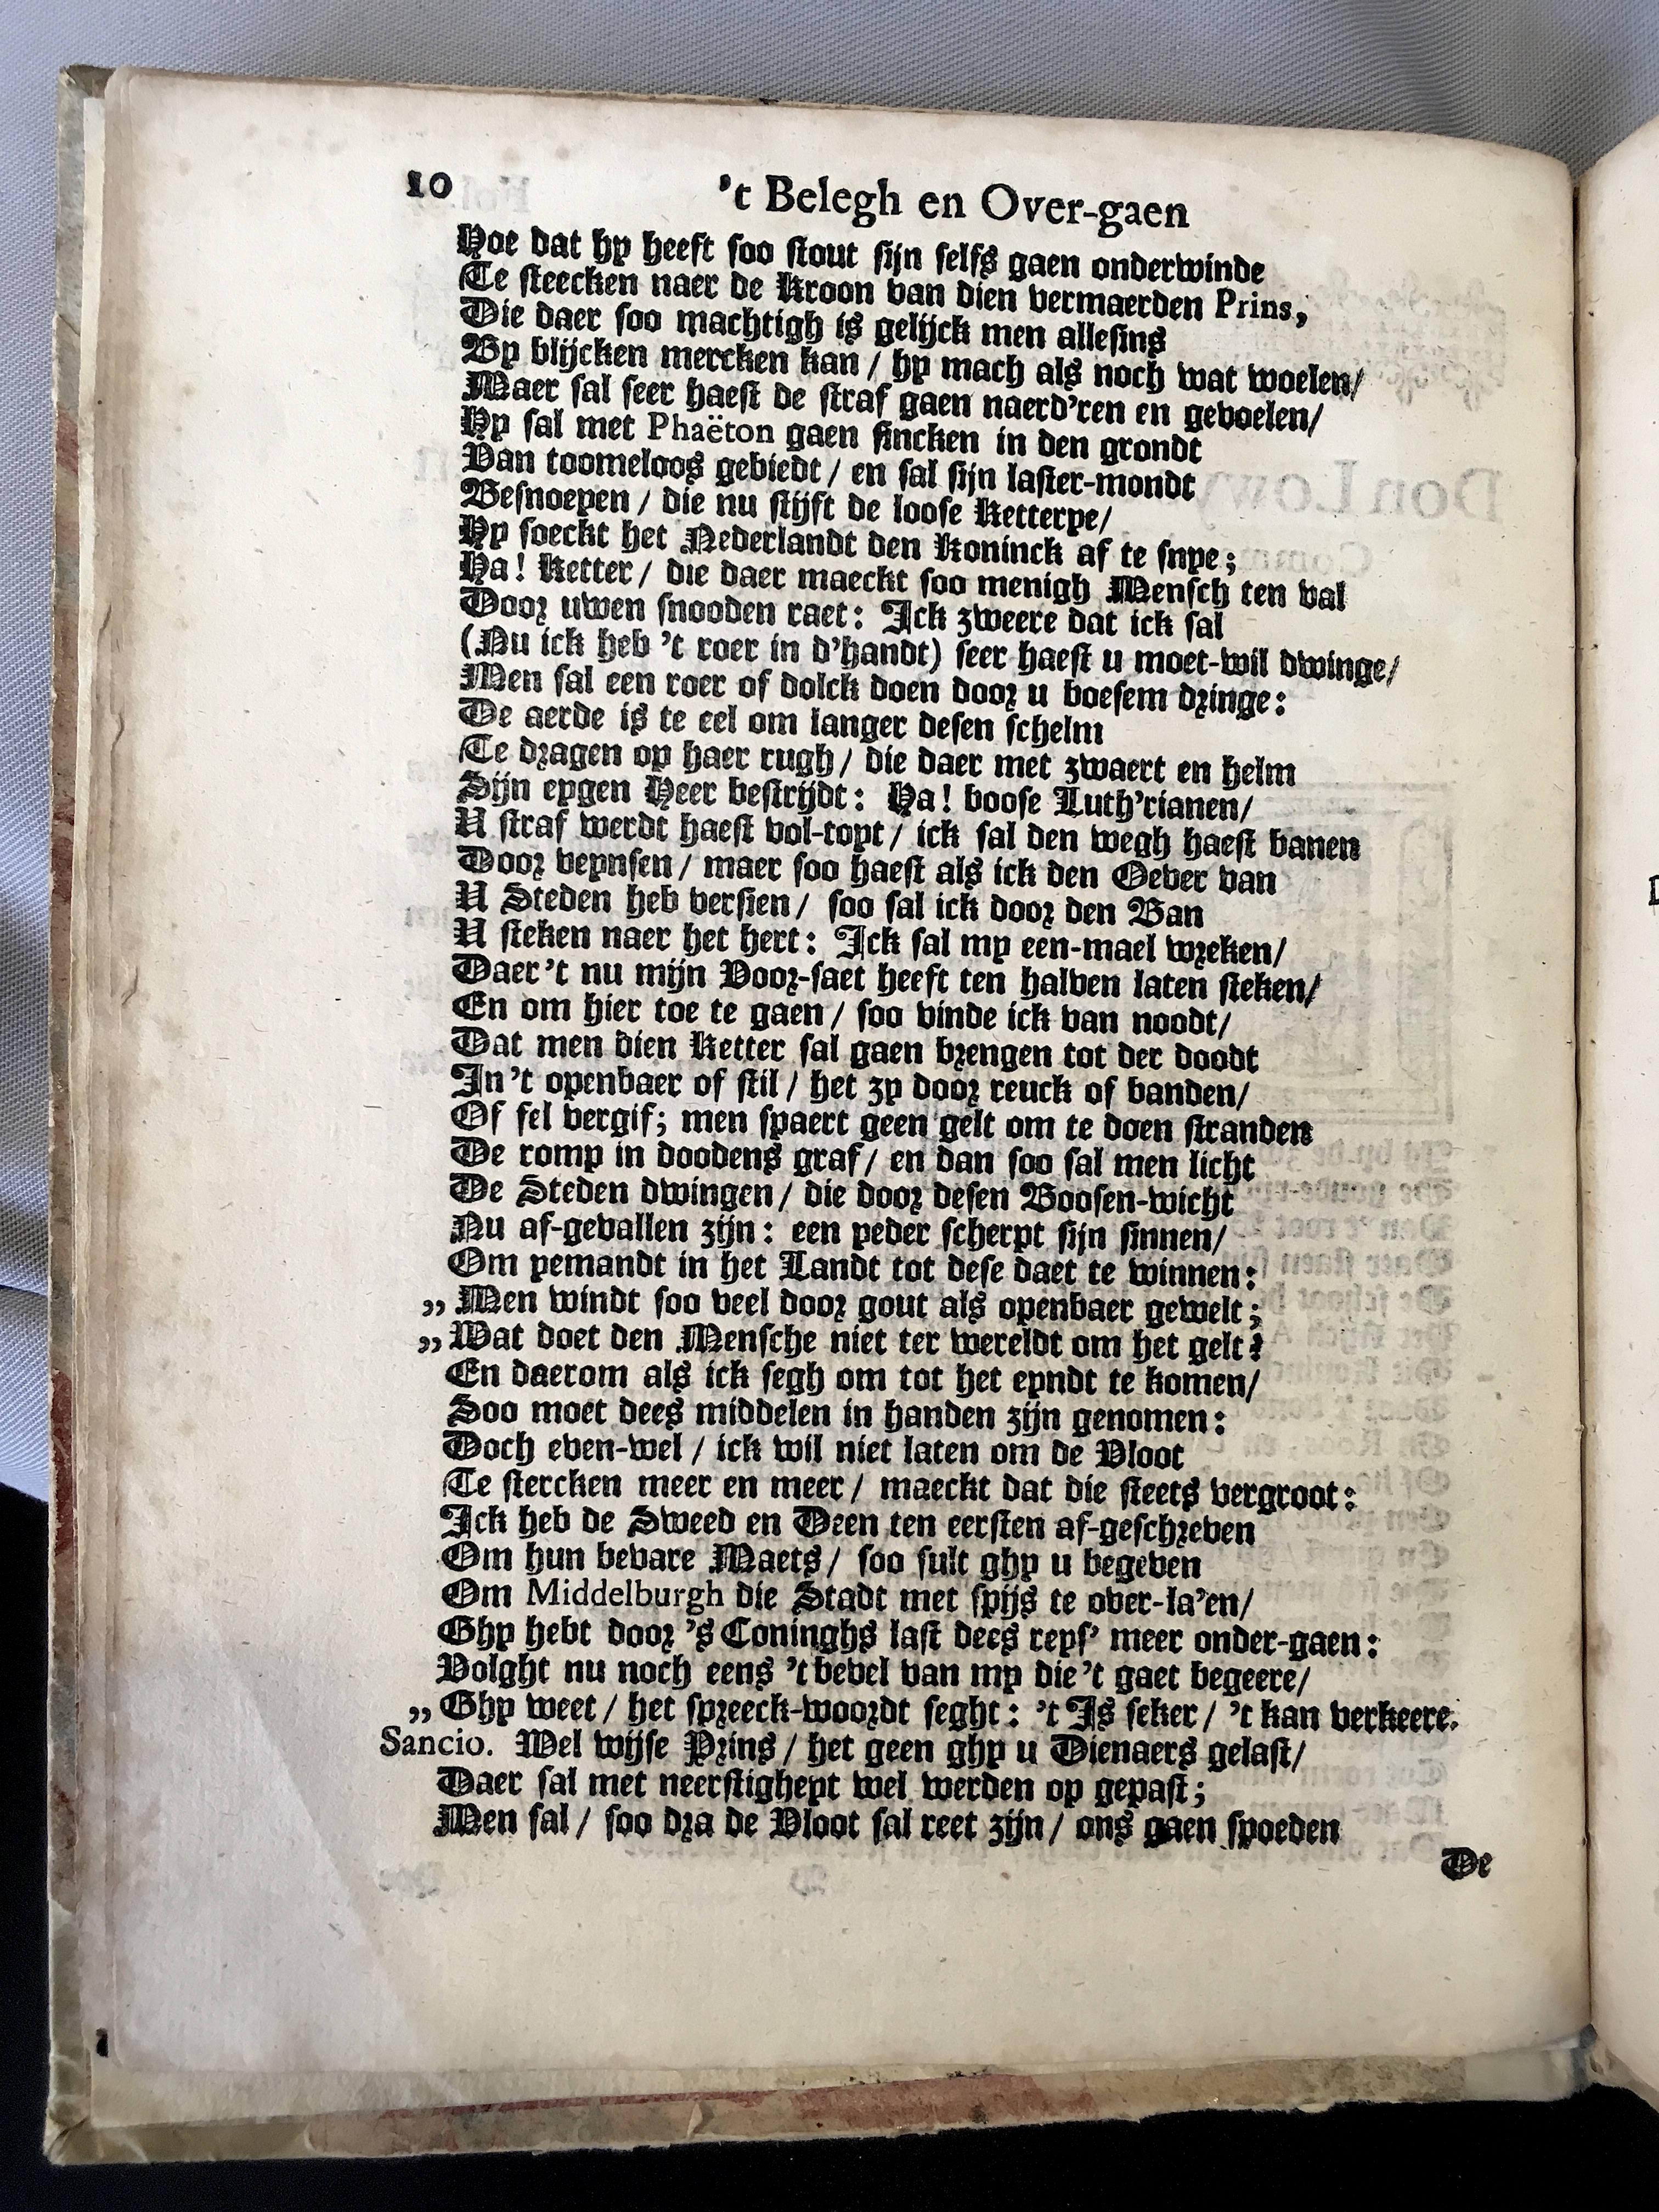 10 't Belegh en Over-gaen
Hoe dat hy heeft soo stout sijn selfs gaen onderwinde
Te steecken naer de Kroon van dien vermaerden Prins,
Die daer soo machtigh is gelijck men allesins
By blijcken mercken kan / hy mach als noch wat woelen/
Maer sal seer haest de straf gaen naerd'ren en gevoelen/
Hy sal met Phaëton gaen sincken in den grondt
Van toomeloos gebiedt / en sal sijn laster-mondt
Besnoeyen / die nu stijft de loose Ketterye/
Hy soeckt het Nederlandt den Koninck af te snye;
Ha! Ketter / die daer maeckt soo menigh Mensch ten val
Door uwen snooden raet: Ick zweere dat ick sal
(Nu ick heb 't roer in d'handt) seer haest u moet-wil dwinge/
Men sal een roer of dolck doen door u boesem dringe:
De aerde is te eel om langer desen schelm
Te dragen op haer rugh / die daer met zwaert en helm
Sijn eygen Heer bestrijdt: Ha! boose Luth'rianen/
U straf werdt haest vol-topt / ick sal den wegh haest banen
Door veynsen / maer soo haest als ick den Oever van
U Steden heb versien / soo sal ick door den Ban
U steken naer het hert: Ick sal my een-mael wreken/
Daer 't nu mijn Voor-saet heeft ten halven laten steken/
En om hier toe te gaen / soo vinde ick van noodt/
Dat men dien Ketter sal gaen brengen tot der doodt
In 't openbaer of stil / het zy door reuck of banden/
Of fel vergif; men spaert geen gelt om te doen stranden
De romp in doodens graf / en dan soo sal men licht
De Steden dwingen / die door desen Boosen-wicht
Nu af-gevallen zijn: een yeder scherpt sijn sinnen/
Om yemandt in het Landt tot dese daet te winnen:
„ Men windt soo veel door gout als openbaer gewelt;
„ Wat doet den Mensche niet ter wereldt om het gelt?
En daerom als ick segh om tot het eyndt te komen/
Soo moet dees middelen in handen zijn genomen:
Doch even-wel / ick wil niet laten om de Vloot
Te stercken meer en meer / maeckt dat die steets vergroot:
Ick heb de Sweed en Deen ten eersten af-geschreven
Om hun bevare Maets / soo sult ghy u begeven
Om Middelburgh die Stadt met spijs te over-la'en/
Ghy hebt door 's Coninghs last dees reys' meer onder-gaen:
Volght nu noch eens 't bevel van my die 't gaet begeere/
„ Ghy weet / het spreeck-woordt seght: 't Is seker / 't kan verkeere.
Sancio. Wel wijse Prins / het geen ghy u Dienaers gelast/
Daer sal met neerstigheyt wel werden op gepast;
Men sal / soo dra de Vloot sal reet zijn / ons gaen spoeden
De